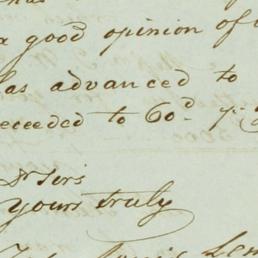 has
a good opinion of
has advanced to
receeded to 60d. p.
& Sirs
Yours truly